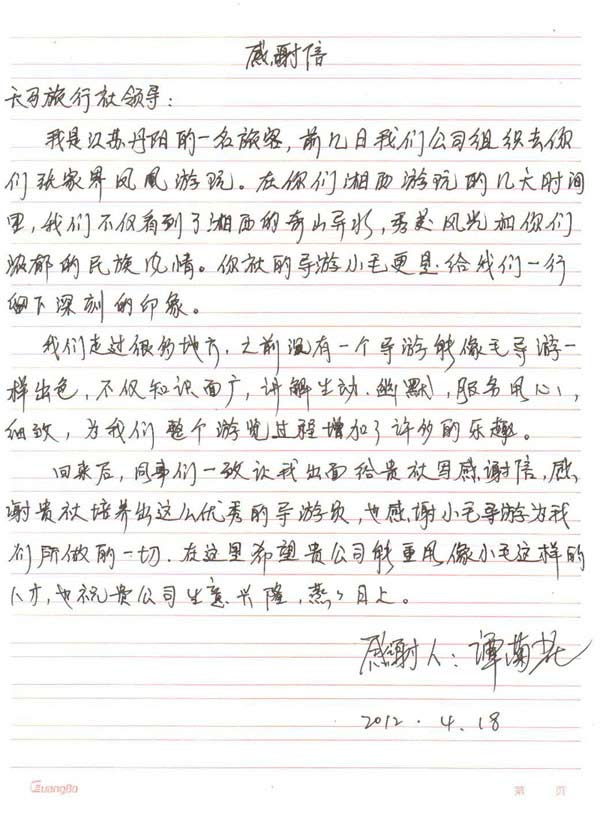 感谢信
天马旅行社领导：
我是江苏丹阳的一名旅客，前几日我们公司组织去你
们张家界凤凰游玩。在你们湘西游玩的几天时间
里，我们不仅看到了湘西的奇山异水，秀美风光和你们
浓郁的民族风情。你社的导游小毛更是给我们一行
留下深刻的印象。
我们走过很多地方，之前没有一个导游能像毛导游一
样出色，不仅知识面广，讲解生动、幽默，服务用心，
细致，为我们整个游览过程增加了许多的乐趣。
回来后，同事们一致让我出面给贵社写感谢信，感
谢贵社培养出这么优秀的导游员，也感谢小毛导游为我
们所做的一切。在这里希望贵公司能重用像小毛这样的
人才，也祝贵公司生意兴隆，蒸々日上。
感谢人：谭菊
2012.4.18
GuangBo
第 页